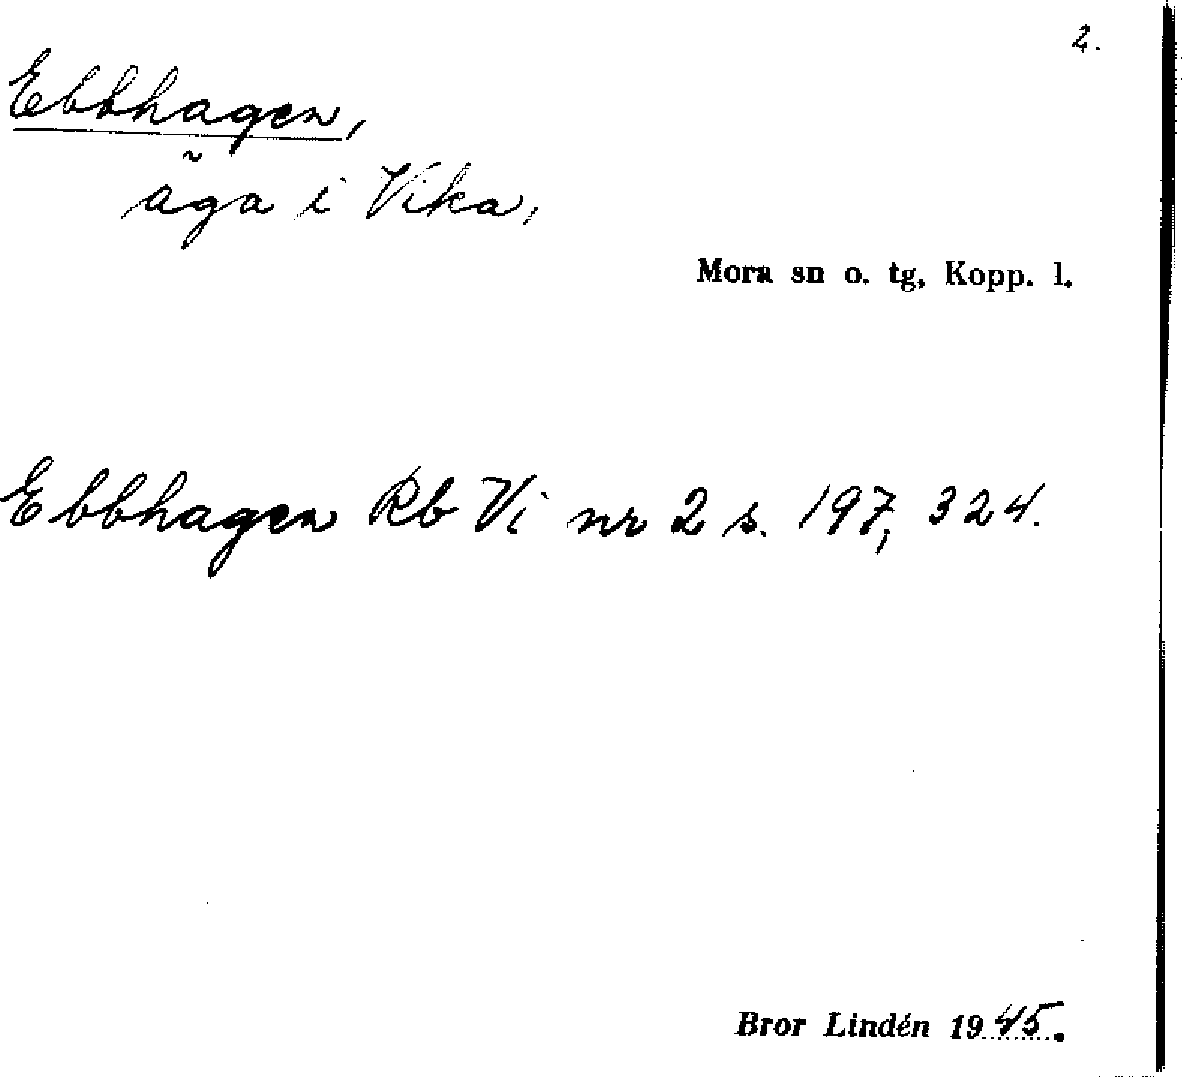 2.
Ebbhagen,
äga i Vika,
Mora sn o. tg, Kopp. l.
Ebbhagen Rb Vi nr 2 s. 197, 324.
Bror Lindén 1945.